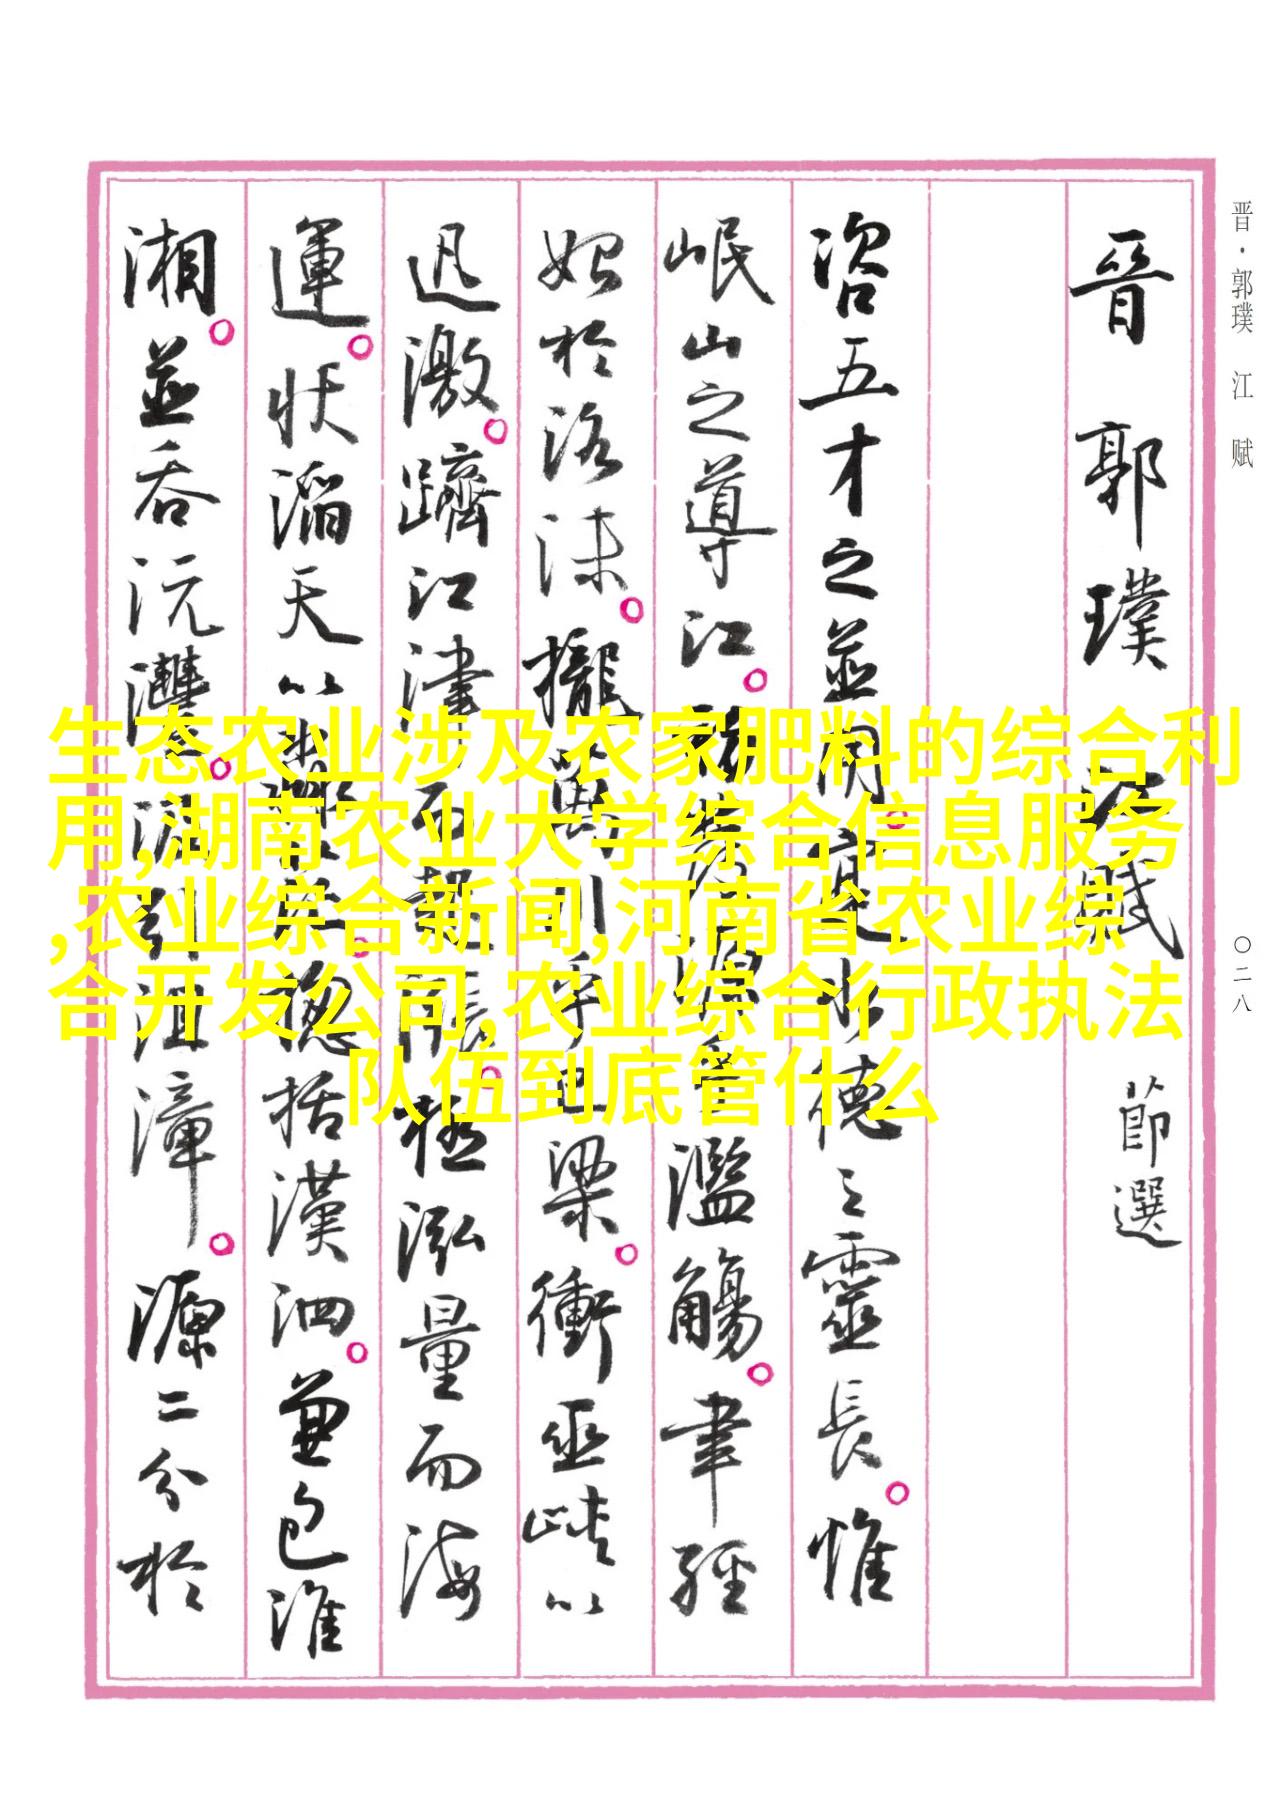 晋·郭璞 江 赋
〇二八
晉 郭 璞 江 賦 節選
咨五才之並用。寔水德之靈長。惟
岷山之導江。初發源乎濫觴。聿經
始於洛沬。攏萬川乎巴梁。衝巫峽以
迅激。躋江津而起漲。極泓量而海
運。状滔天以淼茫。總括漢泗。兼包淮
湘。並吞沅澧。汲引沮漳。源二分於
生态农业涉及农家肥料的综合利
用,湖南农业大学综合信息服务
,农业综合新闻,河南省农业综
合开发公司,农业综合行政执法
队伍到底管什么